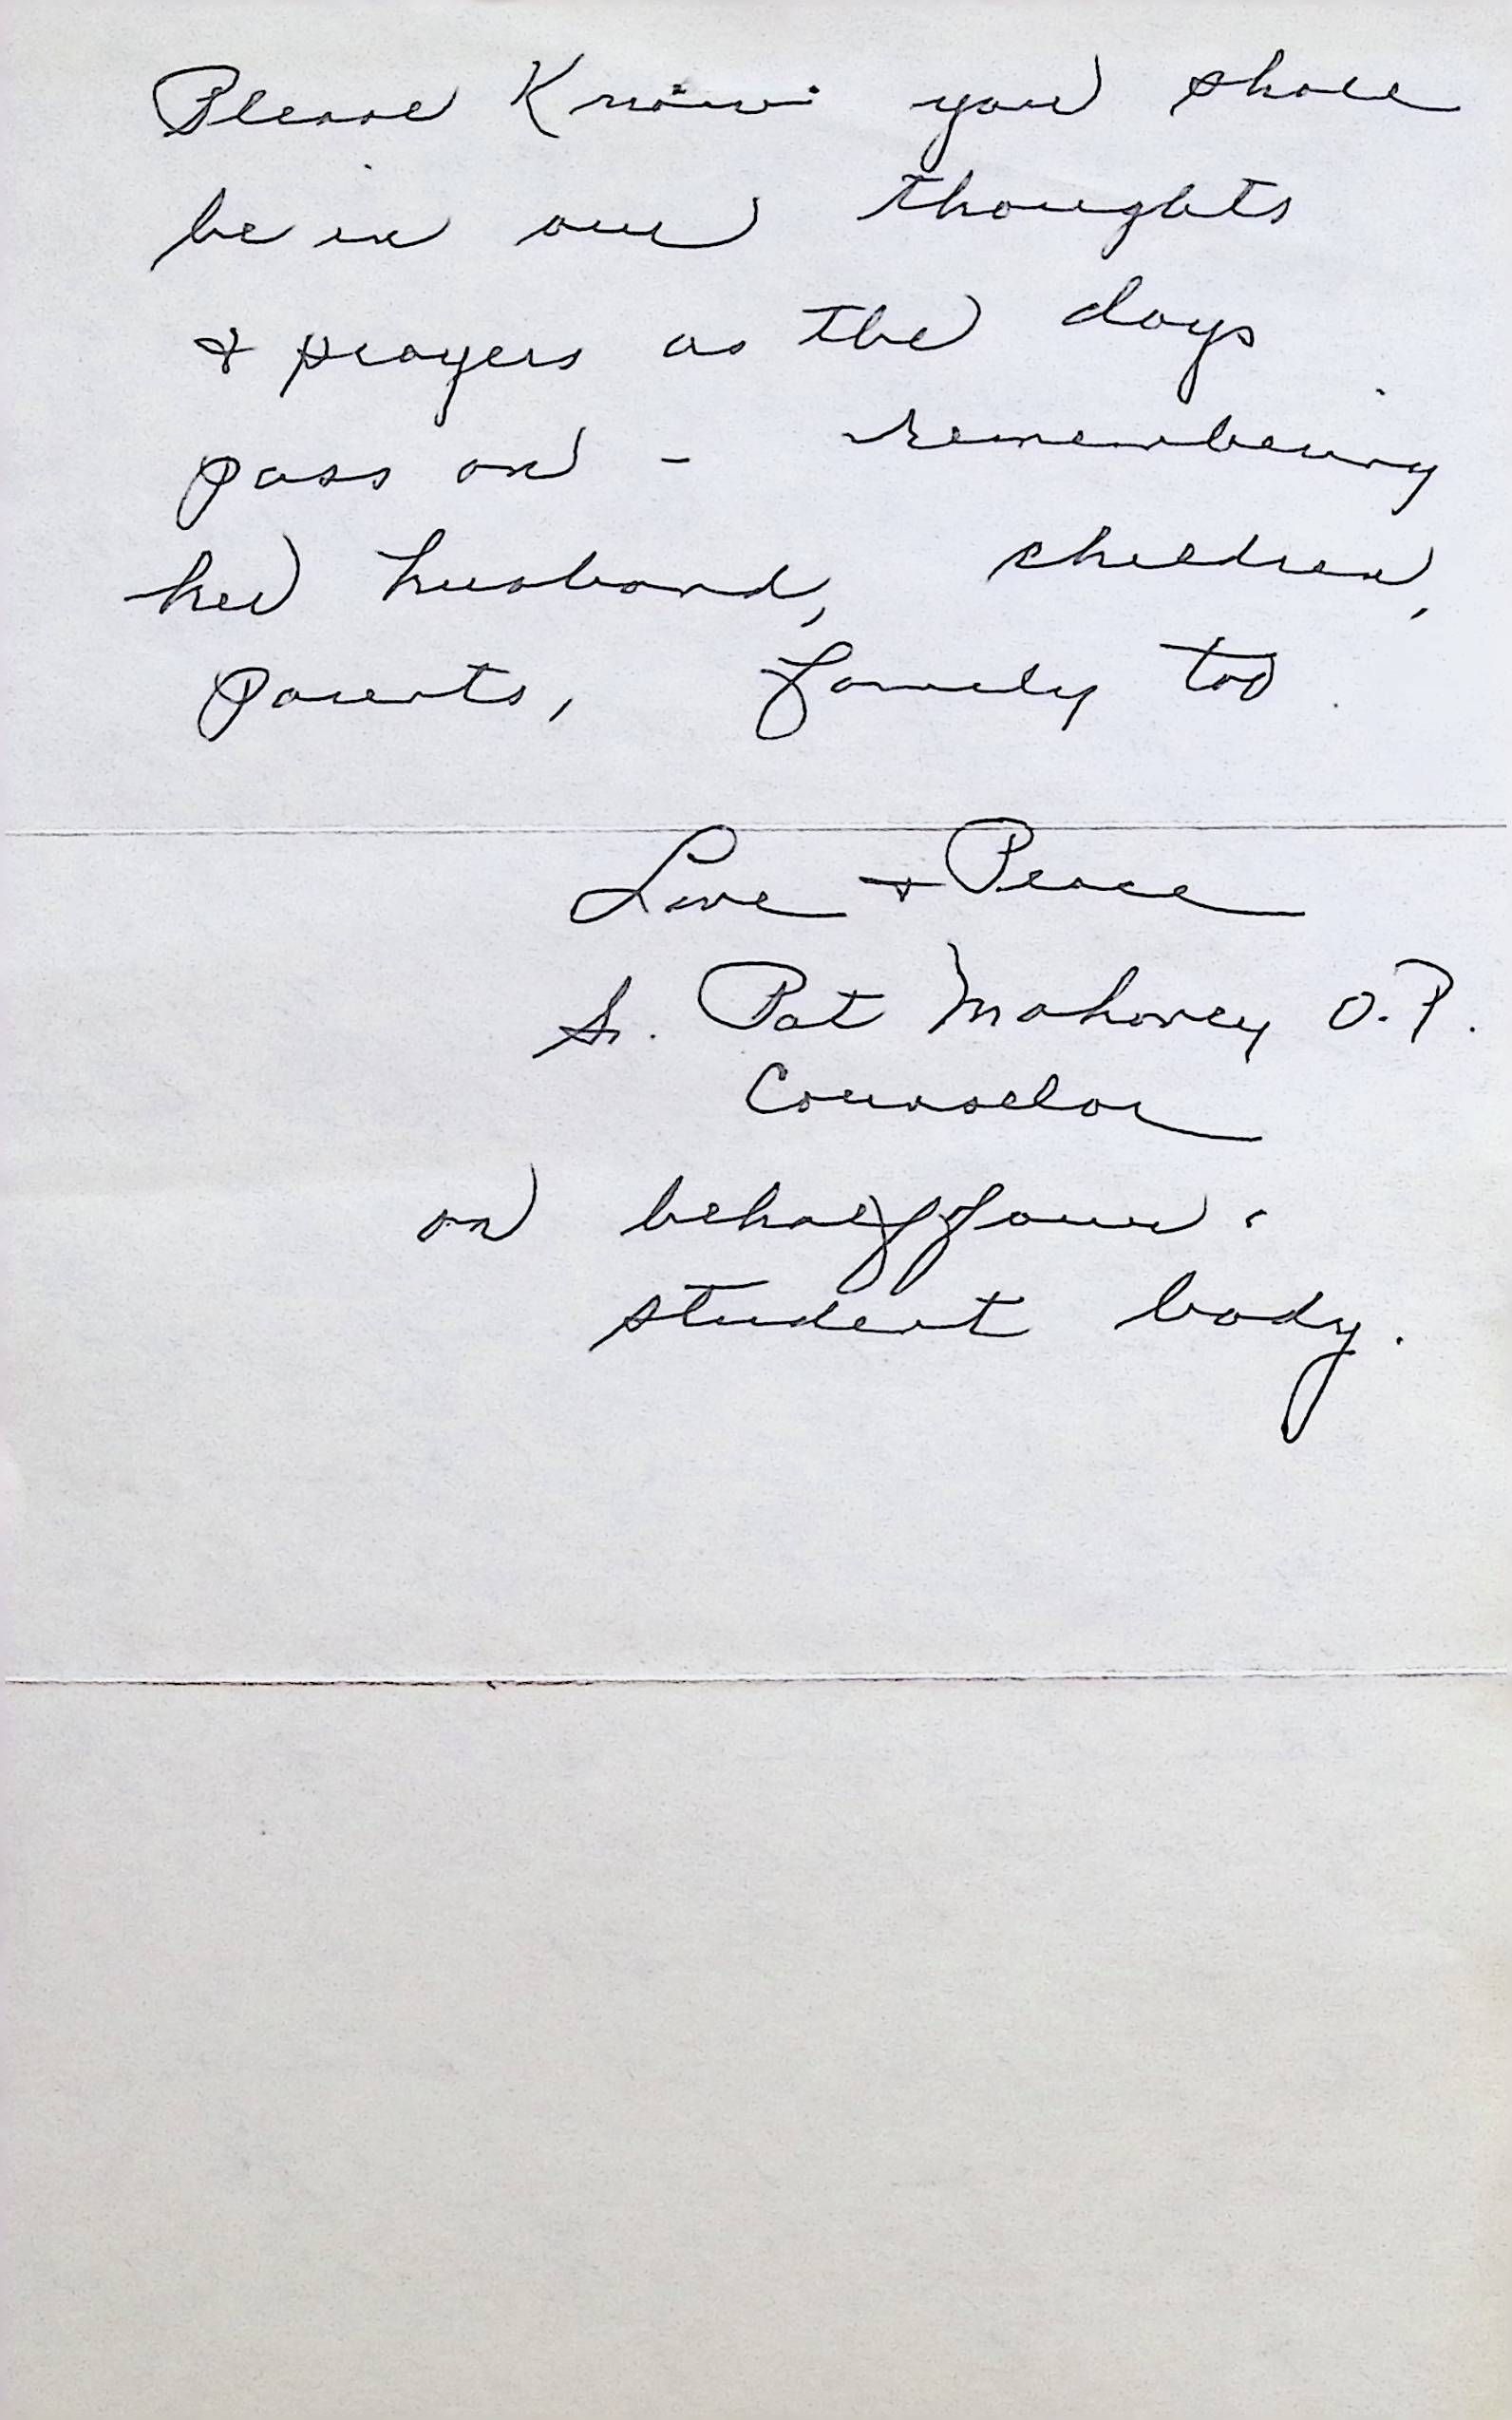 Please Know you shall
be in our thoughts
& prayers as the days
pass on - remembering
her husband, children,
parents, family too.
Love & Peace
S. Pat Mahoney O.P.
Counselor
on behalf of our
student body.